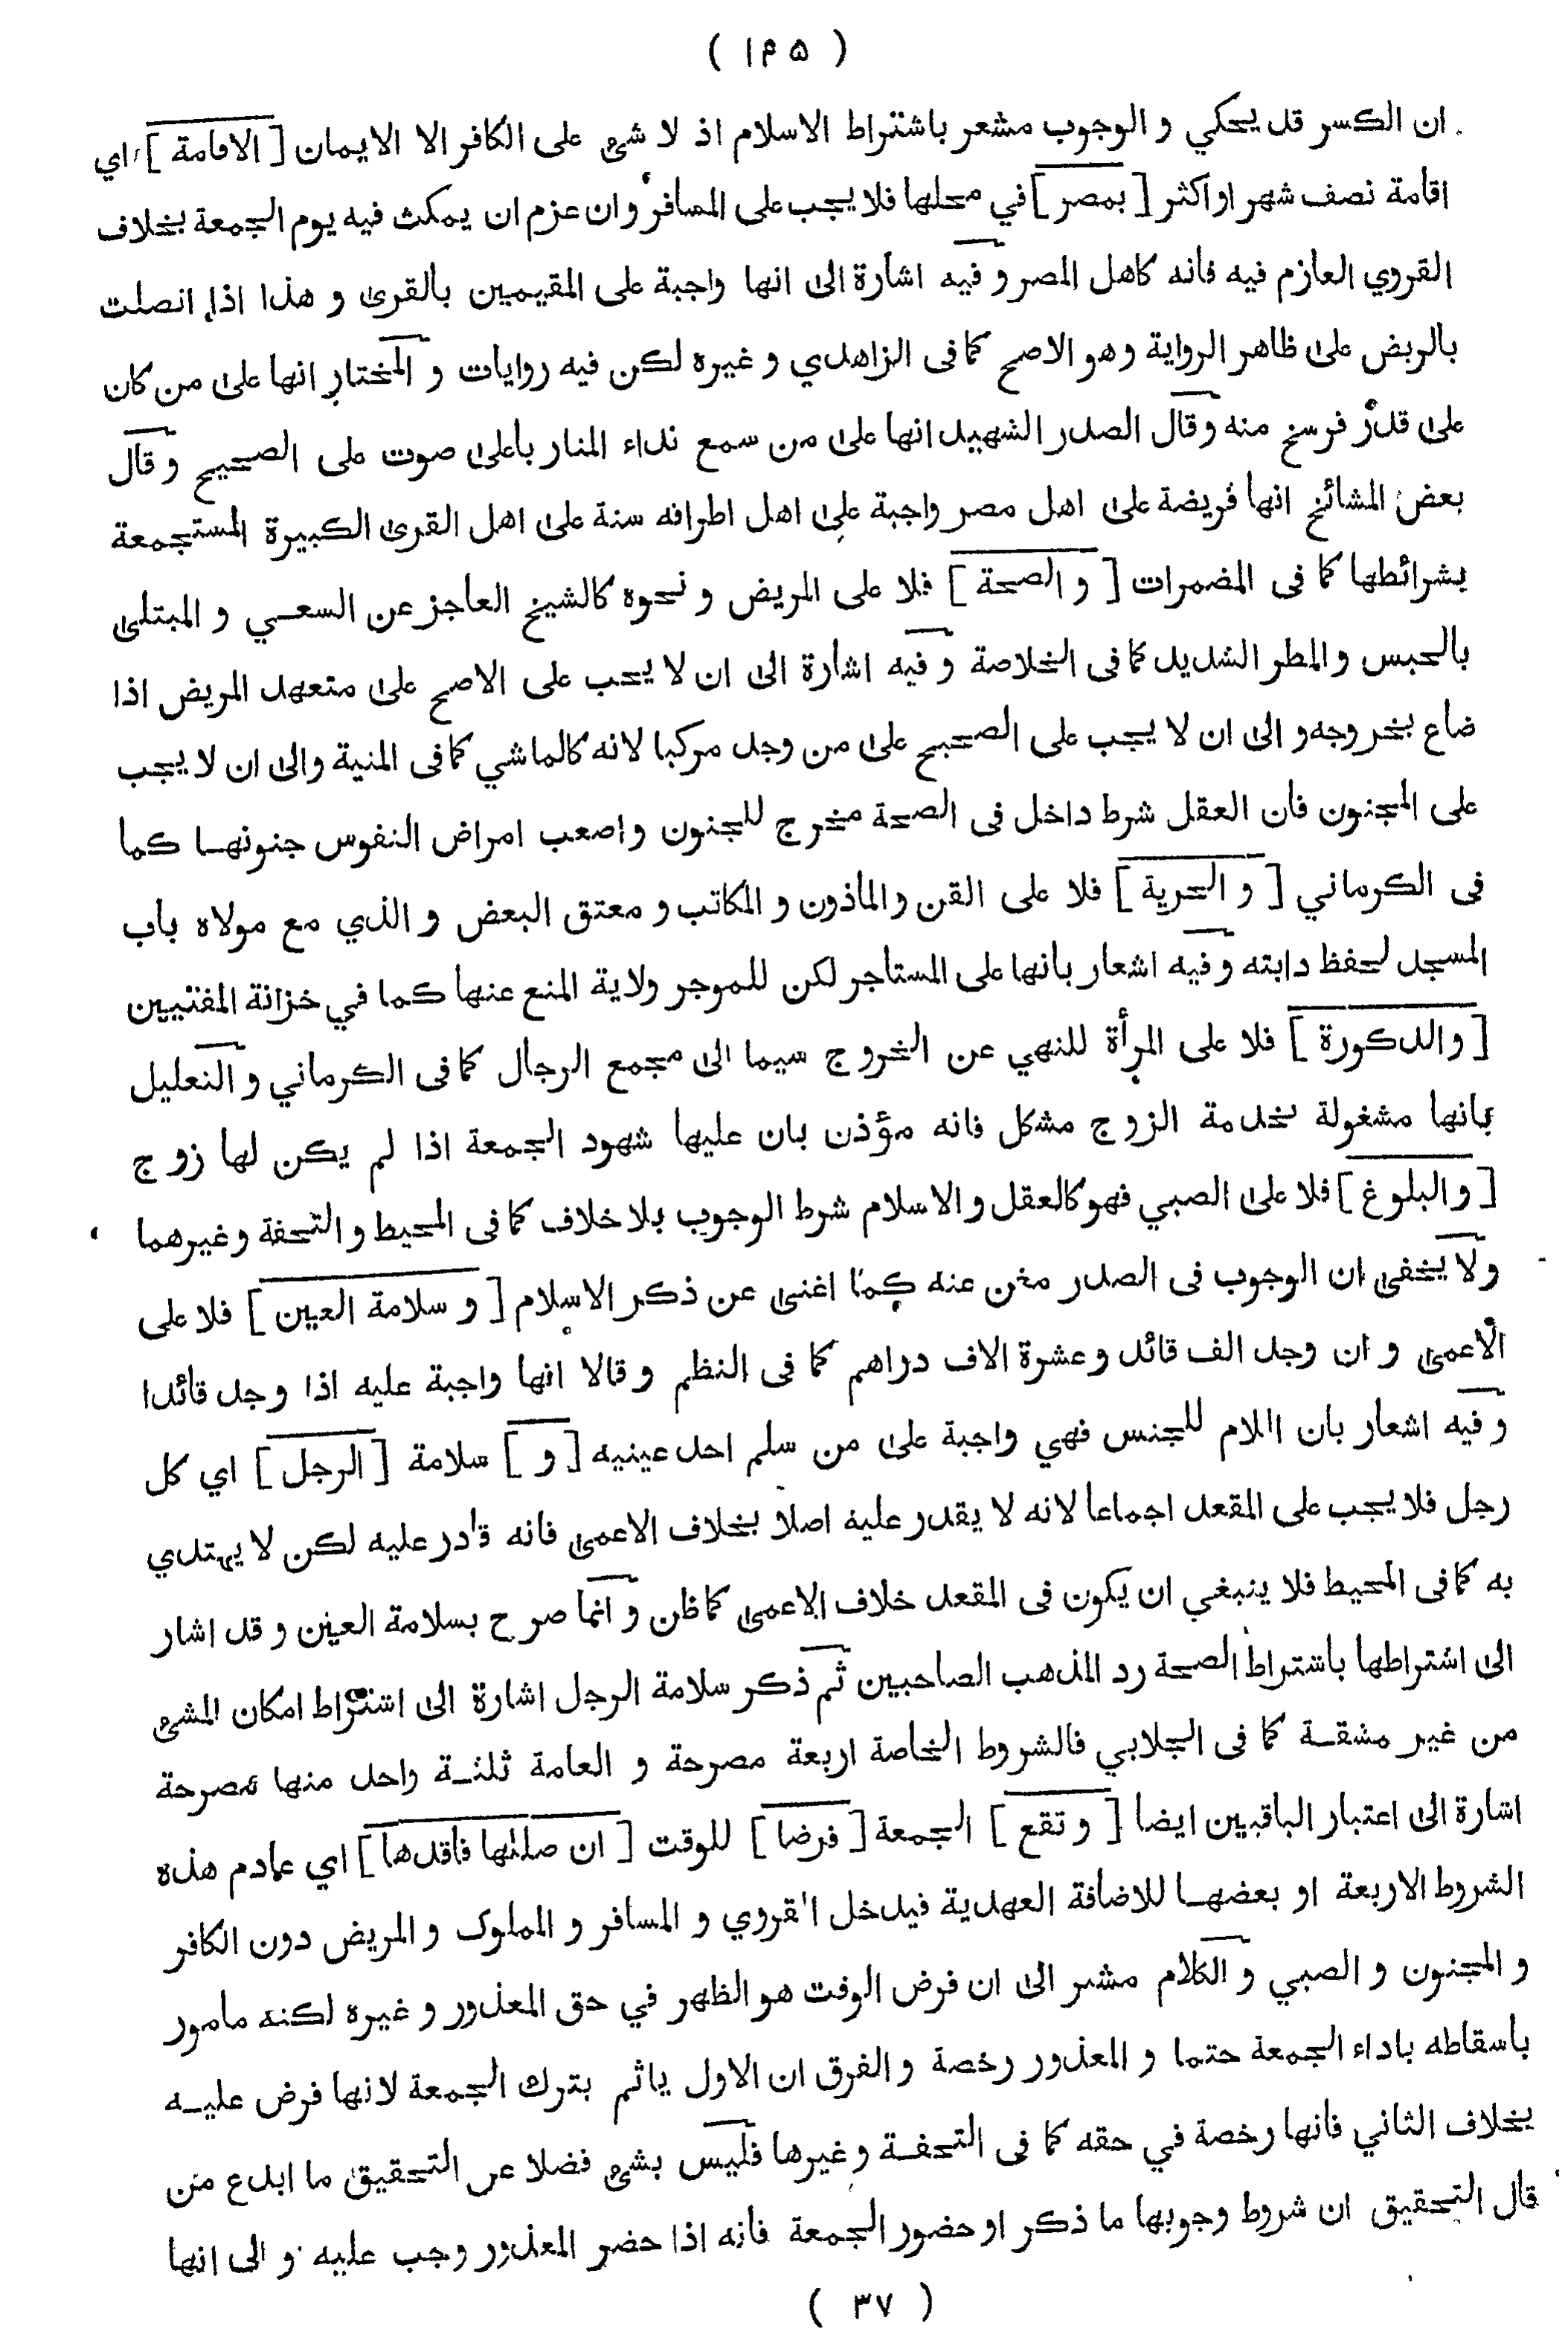 ( ۱۴۵ )
ان الكسر قد يحكي و الوجوب مشعر باشتراط الاسلام اذ لا شئ على الكافر الا الايمان [ الاقامة ] اي
اقامة نصف شهر او اكثر [ بمصر ] في محلها فلا يجب على المسافر و ان عزم ان يمكث فيه يوم الجمعة بخلاف
القروي العازم فيه فانه كاهل المصر و فيه اشارة الى انها واجبة على المقيمين بالقرى و هذا اذا اتصلت
بالربض على ظاهر الرواية وهو الاصح كما فى الزاهدي و غيره لكن فيه روايات و المختار انها على من كان
على قدر فرسخ منه و قال الصدر الشهيد انها على من سمع نداء المنار باعلى صوت على الصحيح و قال
بعض المشائخ انها فريضة على اهل مصر واجبة على اهل اطرافه سنة على اهل القرى الكبيرة المستجمعة
بشرائطها كما فى المضمرات [ و الصحة ] فلا على المريض و نحوه كالشيخ العاجز عن السعي و المبتلى
بالحبس و المطر الشديد كما فى الخلاصة و فيه اشارة الى ان لا يجب على الاصح على متعهد المريض اذا
ضاع بخروجه و الى ان لا يجب على الصحيح على من وجد مركبا لانه كالماشي كما فى المنية والى ان لا يجب
على المجنون فان العقل شرط داخل فى الصحة مخرج للجنون و اصعب امراض النفوس جنونها كما
فى الكرماني [ و الحرية ] فلا على القن و الماذون و المكاتب و معتق البعض و الذي مع مولاه باب
المسجد لحفظ دابته و فيه اشعار بانها على المستاجر لكن للموجر ولاية المنع عنها كما في خزانة المفتيين
[ و الذكورة ] فلا على المرأة للنهي عن الخروج سيما الى مجمع الرجال كما فى الكرماني و التعليل
بانها مشغولة بخدمة الزوج مشكل فانه مؤذن بان عليها شهود الجمعة اذا لم يكن لها زوج
[ و البلوغ ] فلا على الصبي فهو كالعقل و الاسلام شرط الوجوب بلا خلاف كما فى المحيط و التحفة و غيرهما
و لا يخفى ان الوجوب فى الصدر مغن عنه كما اغنى عن ذكر الاسلام [ و سلامة العين ] فلا على
الاعمى و ان وجد الف قائد و عشرة الاف دراهم كما فى النظم و قالا انها واجبة عليه اذا وجد قائدا
و فيه اشعار بان اللام للجنس فهي واجبة على من سلم احد عينيه [ و ] سلامة [ الرجل ] اي كل
رجل فلا يجب على المقعد اجماعا لانه لا يقدر عليه اصلا بخلاف الاعمى فانه قادر عليه لكن لا يهتدي
به كما فى المحيط فلا ينبغي ان يكون فى المقعد خلاف الاعمى كما ظن و انما صرح بسلامة العين و قد اشار
الى اشتراطها باشتراط الصحة رد المذهب الصاحبين ثم ذكر سلامة الرجل اشارة الى اشتراط امكان المشئ
من غير مشقة كما فى الجلابي فالشروط الخاصة اربعة مصرحة و العامة ثلثة واحد منها مصرحة
اشارة الى اعتبار الباقيين ايضا [ و تقع ] الجمعة [ فرضا ] للوقت [ ان صلٰها فاقدها ] اي عادم هذه
الشروط الاربعة او بعضها للاضافة العهدية فيدخل القروي و المسافر و المملوك و المريض دون الكافر
و المجنون و الصبي و الكلام مشير الى ان فرض الوقت هو الظهر في حق المعذور و غيره لكنه مامور
باسقاطه باداء الجمعة حتما و المعذور رخصة و الفرق ان الاول ياثم بترك الجمعة لانها فرض عليه
بخلاف الثاني فانها رخصة في حقه كما فى التحفة و غيرها فليس بشئ فضلا عن التحقيق ما ابدع من
قال التحقيق ان شروط وجوبها ما ذكر او حضور الجمعة فانه اذا حضر المعذور وجب عليه و الى انها
( ۳۷ )